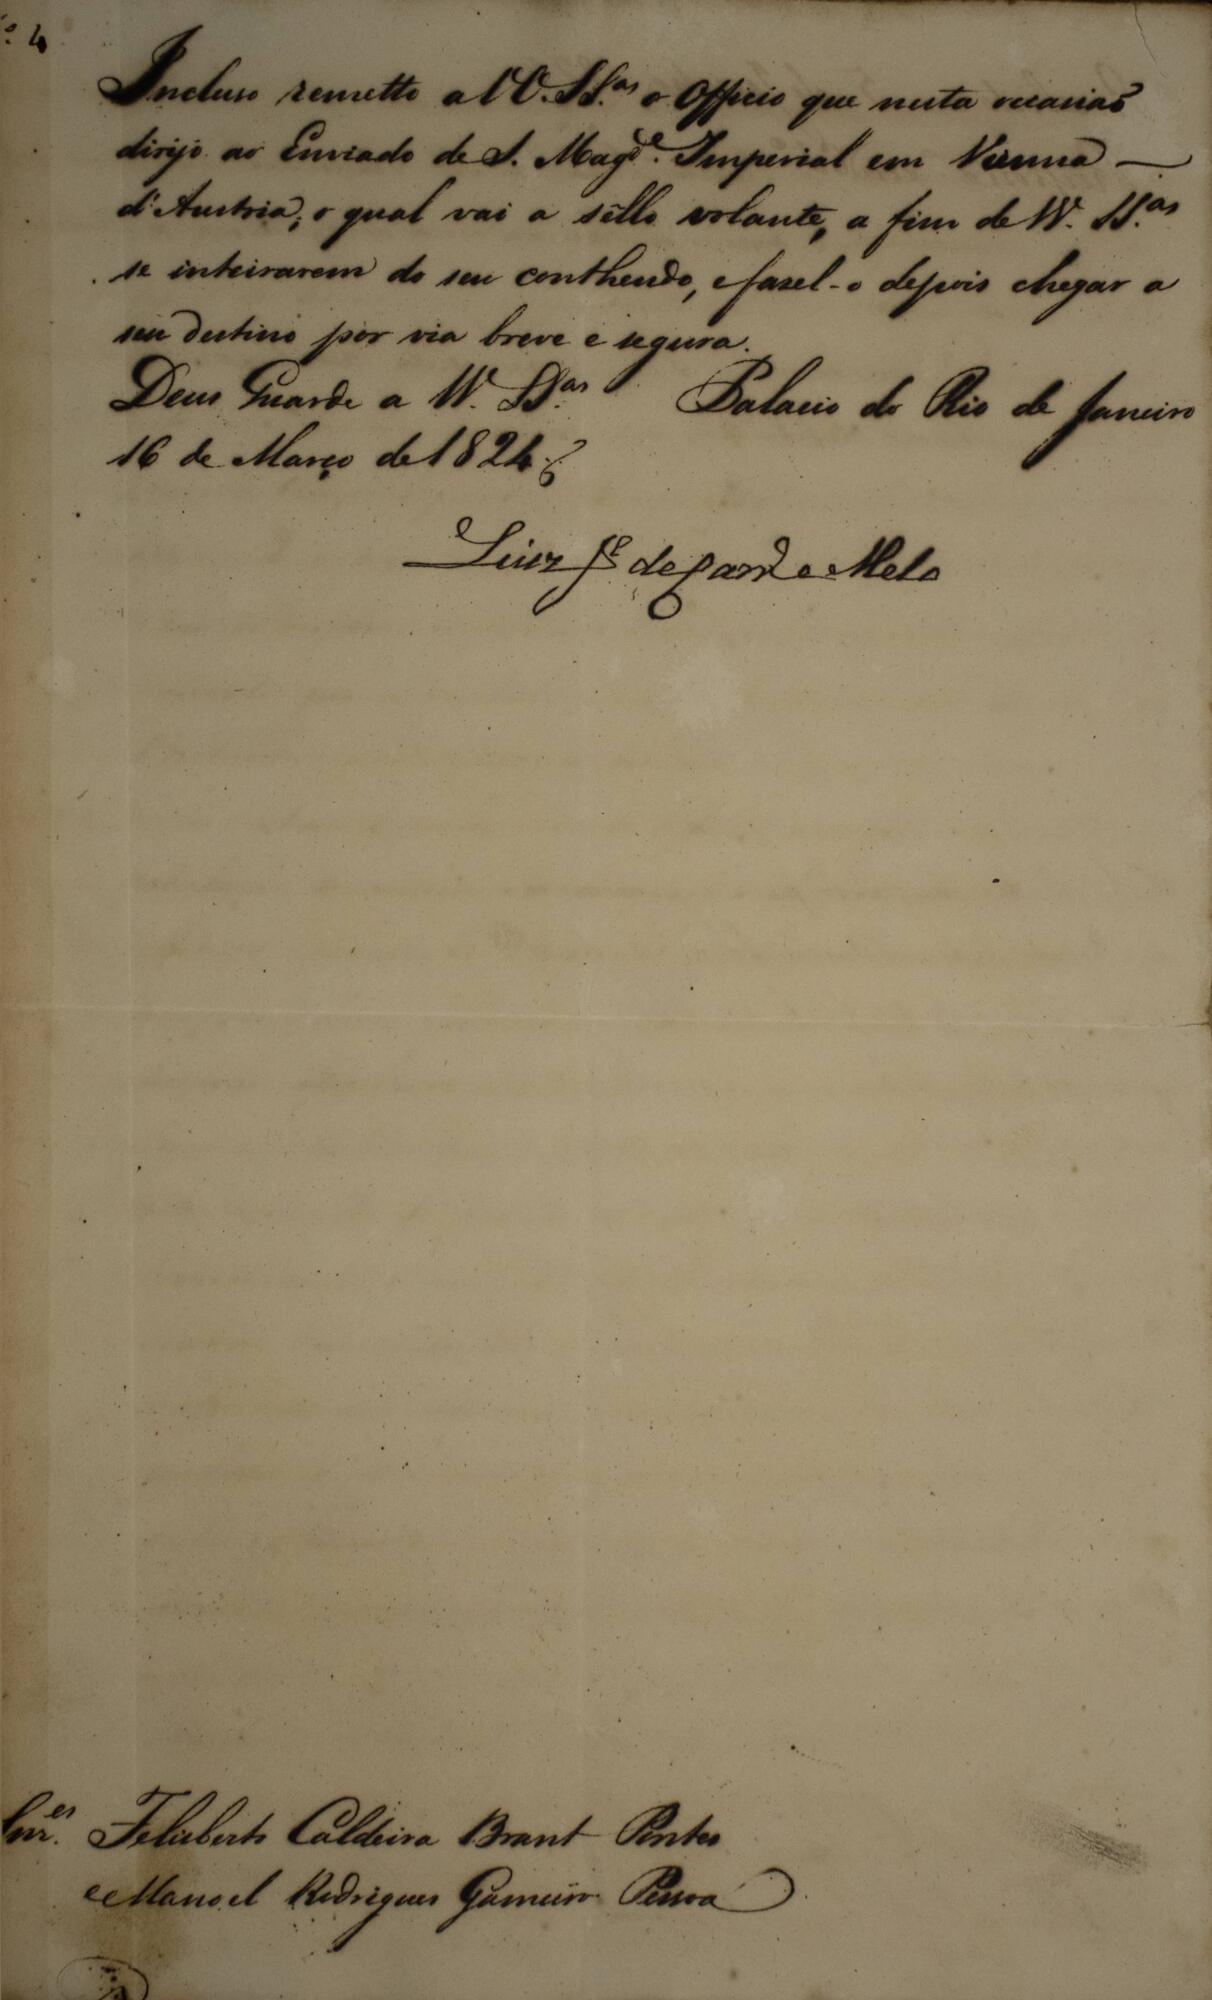 4
Incluso remetto a VV. SS.as o Officio que nesta occasiaõ
dirijo ao Enviado de S. Mag.de Imperial em Vienna —
d'Austria; o qual vai a sêllo volante, a fim de VV. SS.as
se inteirarem do seu conthendo, e fazel-o depois chegar a
seu destino por via breve e segura.
Deus Guarde a VV. SS.as Palacio do Rio de Janeiro
16 de Março de 1824.
Luiz Je de Carv.o e Melo
Snr.es Felisberto Caldeira Brant Pontes
e Manoel Rodrigues Gameiro Pessoa